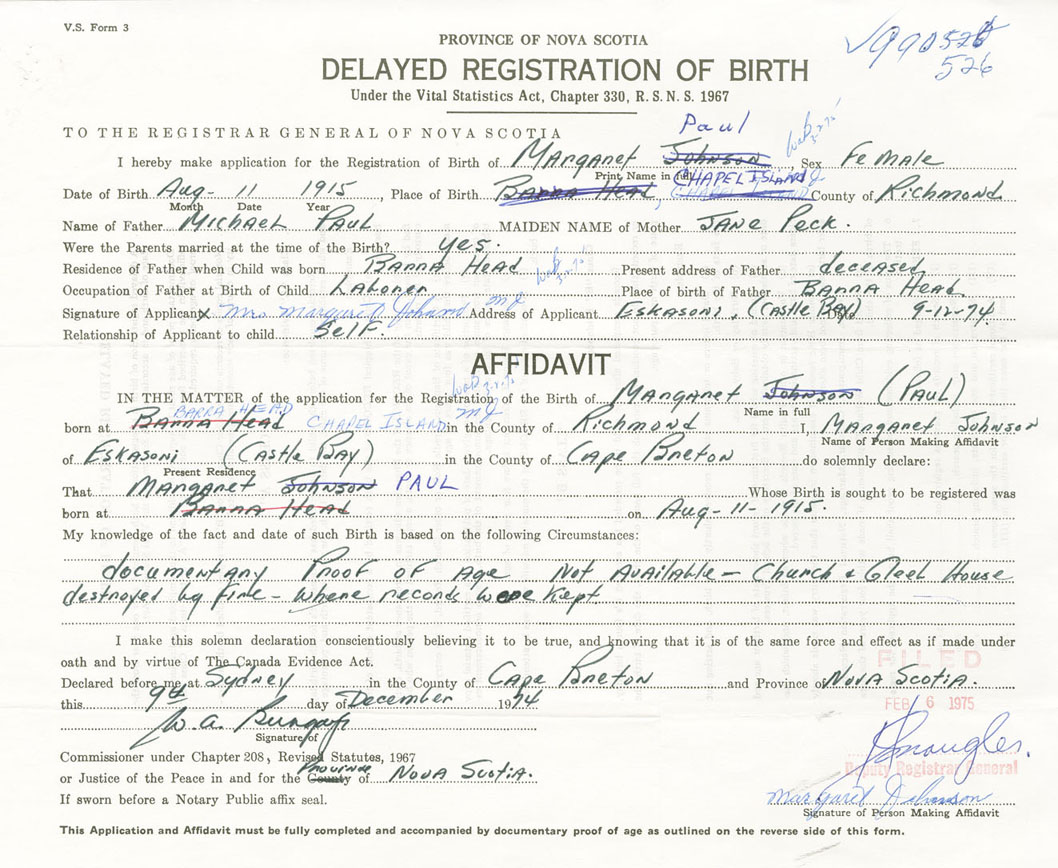 V.S. Form 3
990526
526
PROVINCE OF NOVA SCOTIA
DELAYED REGISTRATION OF BIRTH
Under the Vital Statistics Act, Chapter 330, R. S. N. S. 1967
TO THE REGISTRAR GENERAL OF NOVA SCOTIA
Paul
I hereby make application for the Registration of Birth of Margaret Johnson, Sex Female
Print Name in full
Date of Birth Aug- 11 1915, Place of Birth Barra Head, CHAPEL ISLAND County of Richmond
Month Date Year
Name of Father Michael Paul MAIDEN NAME of Mother JANE Peck.
Were the Parents married at the time of the Birth? yes.
Residence of Father when Child was born Barra Head Present address of Father deceased
Occupation of Father at Birth of Child Laborer Place of birth of Father Barra Head
Signature of Applicant X Mrs Margaret P Johnson MJ Address of Applicant Eskasoni, (Castle Bay) 9-12-74.
Relationship of Applicant to child Self.
AFFIDAVIT
IN THE MATTER of the application for the Registration of the Birth of Margaret Johnson (Paul)
Name in full
BARRA HEAD
born at Barra Head CHAPEL ISLAND MJ in the County of Richmond I, Margaret Johnson
Name of Person Making Affidavit
of Eskasoni (Castle Bay) in the County of Cape Breton do solemnly declare:
Present Residence
That Margaret Johnson PAUL Whose Birth is sought to be registered was
born at Barra Head on Aug- 11- 1915.
My knowledge of the fact and date of such Birth is based on the following Circumstances:
documentary Proof of Age Not Available - Church & Gleeb House
destroyed by fire - where records were kept
I make this solemn declaration conscientiously believing it to be true, and knowing that it is of the same force and effect as if made under
oath and by virtue of The Canada Evidence Act.
FILED
Declared before me at Sydney in the County of Cape Breton and Province of Nova Scotia.
this 9th day of December 1974
FEB 6 1975
W. A.
Signature of
Commissioner under Chapter 208, Revised Statutes, 1967
Province
or Justice of the Peace in and for the County of Nova Scotia.
Deputy Registrar General
If sworn before a Notary Public affix seal.
Margaret Johnson
Signature of Person Making Affidavit
This Application and Affidavit must be fully completed and accompanied by documentary proof of age as outlined on the reverse side of this form.